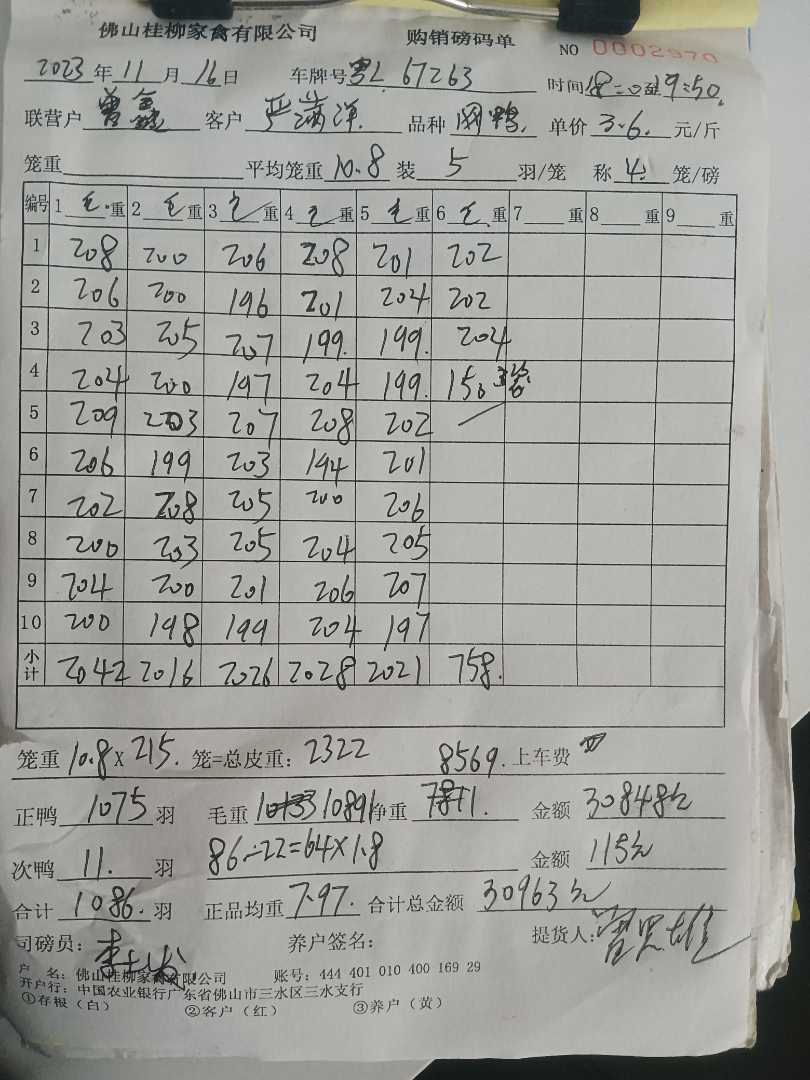 佛山桂柳家禽有限公司 购销磅码单 NO 0002970
2023年11月16日 车牌号粤L67263 时间18:20至19:50
联营户 曾 客户 严满洋 品种 网鸭. 单价 3.6. 元/斤
笼重 平均笼重 10.8 装 5 羽/笼 称 4 笼/磅
编号 1 毛重 2 毛重 3 毛重 4 毛重 5 毛重 6 毛重 7 重 8 重 9 重
1 208 200 206 208 201 202
2 206 200 196 201 204 202
3 203 205 207 199. 199. 204
4 204 200 197 204 199. 150 3笼
5 209 203 207 208 202
6 206 199 203 194 201
7 202 208 205 200 206
8 200 203 205 204 205
9 204 200 201 206 207
10 200 198 199 204 197
小计 2042 2016 2026 2028 2021 758.
笼重 10.8 X 215. 笼=总皮重: 2322 8569. 上车费
正鸭 1075 羽 毛重 10891 净重 金额 30848元
次鸭 11. 羽 86-22=64×1.8 金额 115元
合计 1086. 羽 正品均重 7.97. 合计总金额 30963元
司磅员: 养户签名: 提货人: 曾思雄
户 名: 佛山桂柳家禽有限公司 账号: 444 401 010 400 169 29
开户行: 中国农业银行广东省佛山市三水区三水支行
①存根(白) ②客户(红) ③养户(黄)